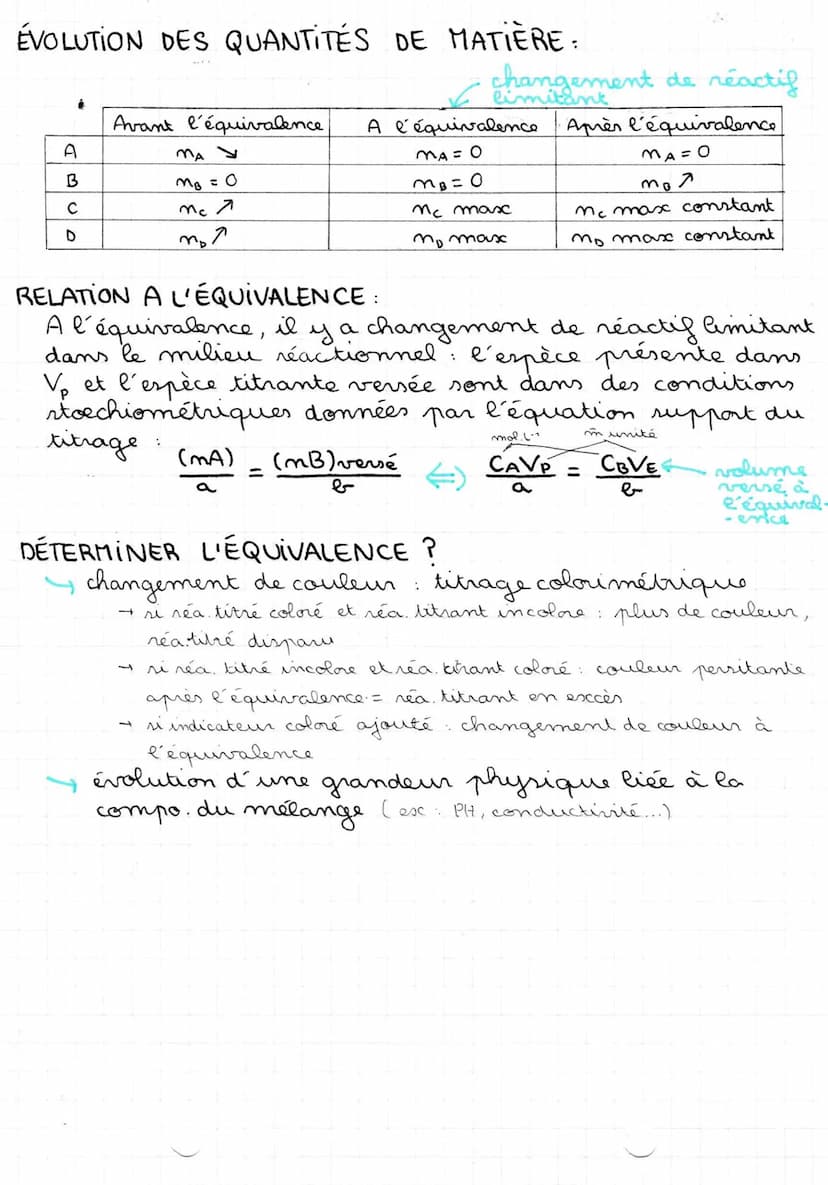 ÉVOLUTION DES QUANTITÉS DE MATIÈRE :
changement de réactif
limitant
Avant l'équivalence A l'équivalence Après l'équivalence
A nA ↘ nA = 0 nA = 0
B nB = 0 nB = 0 nB ↗
C nC ↗ nC max nC max constant
D nD ↗ nD max nD max constant
RELATION A L'ÉQUIVALENCE :
A l'équivalence, il y a changement de réactif limitant
dans le milieu réactionnel : l'espèce présente dans
Vp et l'espèce titrante versée sont dans des conditions
stoechiométriques données par l'équation support du
titrage :
mol.L⁻¹ m̂ unité
(nA)/a = (nB)versé/b ⇔ CAVP/a = CBVE/b
volume
versé à
l'équival-
-ence
DÉTERMINER L'ÉQUIVALENCE ?
↪ changement de couleur : titrage colorimétrique
→ si réa. titré coloré et réa. titrant incolore : plus de couleur,
réa. titré disparu
→ si réa. titré incolore et réa. titrant coloré : couleur persitante
après l'équivalence = réa. titrant en excès
→ si indicateur coloré ajouté : changement de couleur à
l'équivalence
↪ évolution d'une grandeur physique liée à la
compo. du mélange (ex : PH, conductivité...)